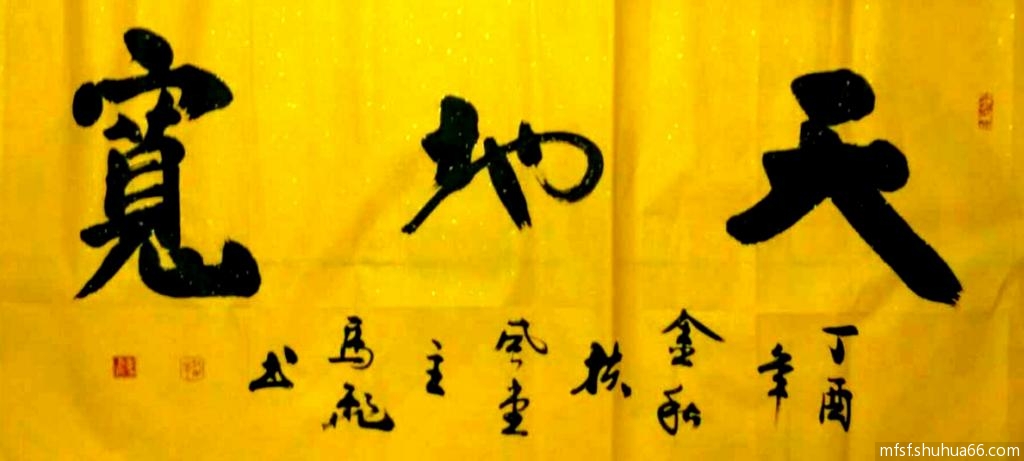 天地寬
丁酉
年
金秋
扶
風堂
主
馬飛
书
mfsf.shuhua66.com